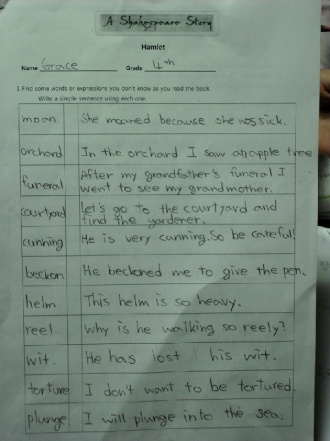 A Shakespeare Story
Hamlet
Name Grace Grade 4th
1. Find some words or expressions you don't know as you read the book.
Write a simple sentence using each one.
moan She moaned because she was sick.
orchard In the orchard I saw an apple tree
funeral After my grandfather's funeral I
went to see my grandmother.
courtyard Let's go to the courtyard and
find the gardener.
cunning He is very cunning. So be careful!
beckon He beckoned me to give the pen.
helm This helm is so heavy.
reel Why is he walking so reely?
wit. He has lost his wit.
torture I don't want to be tortured.
plunge I will plunge into the sea.